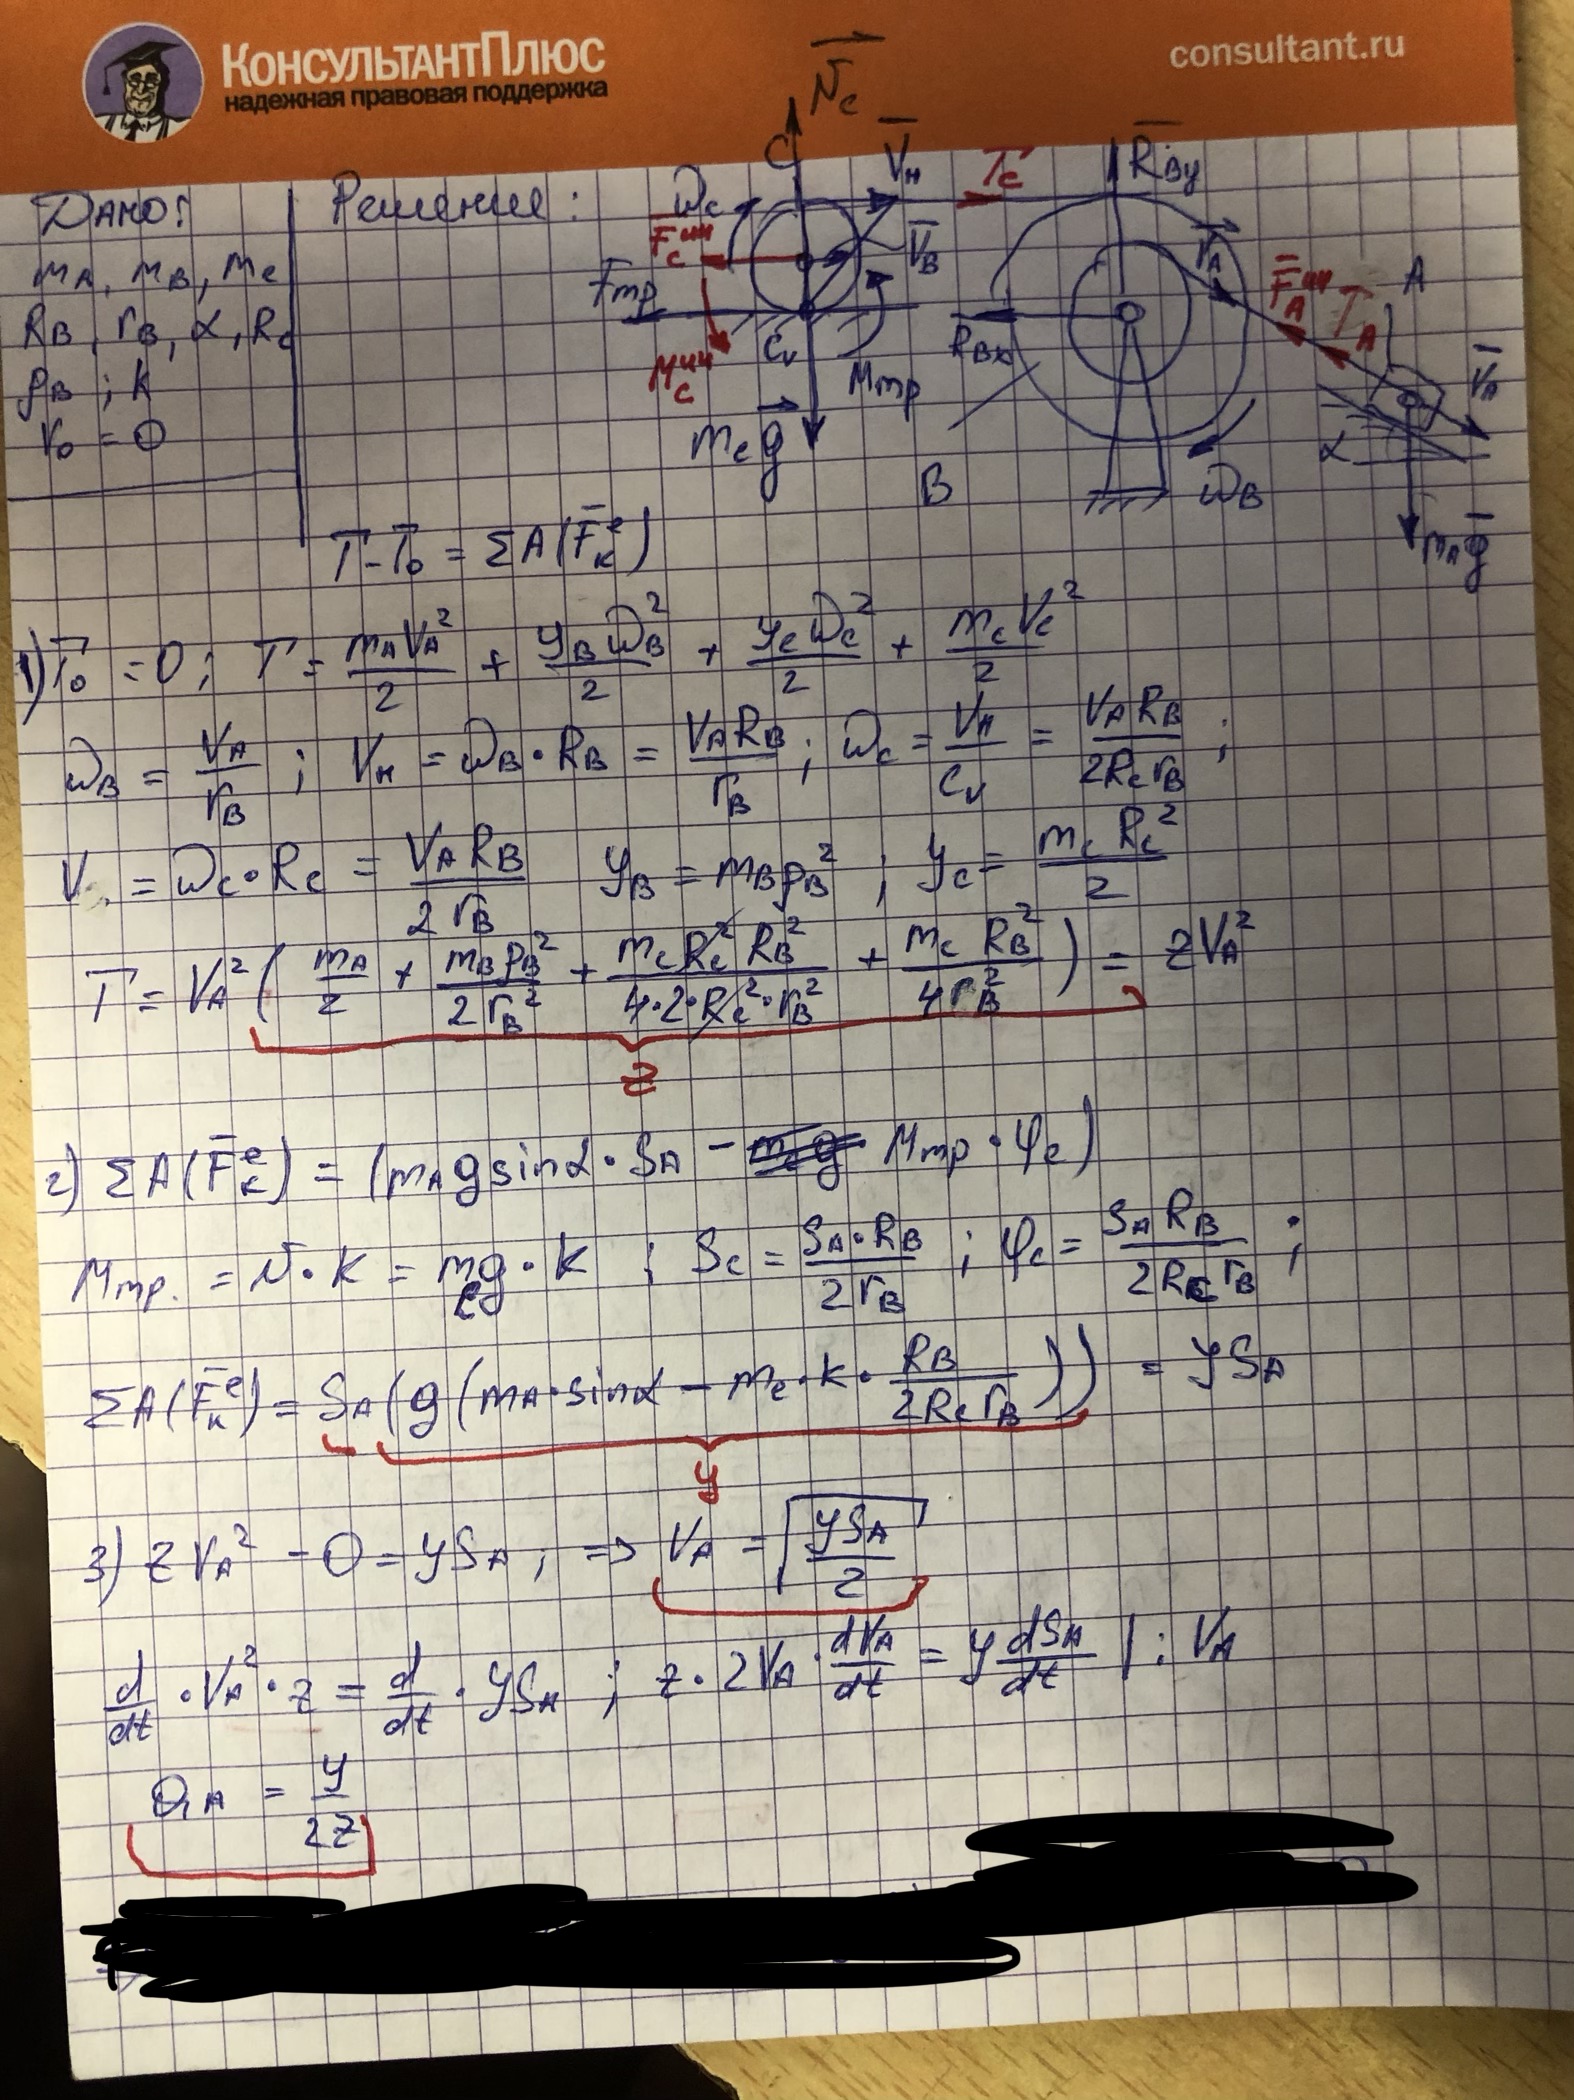 КонсультантПлюс
надежная правовая поддержка
consultant.ru
Дано:
mA, mB, mC
RB, rB, α, RC
ρB ; k
V₀ = 0
Решение:
N̄C
C
V̄н
T̄C
R̄By
ωC
F̄Cин
V̄B
V̄A
F̄Aин
T̄A
A
Fтр
MCин
Cv
Mтр
RBx
V̄A
mCg
B
ωB
α
mAḡ
T - T₀ = ΣA(F̄ₖᵉ)
1) T₀ = 0; T = mAVA²/2 + yBωB²/2 + yCωC²/2 + mCVC²/2
ωB = VA/rB ; Vн = ωB·RB = VARB/rB ; ωC = Vн/Cv = VARB/2RCrB ;
V = ωC·RC = VARB/2rB yB = mBρB² ; yC = mCRC²/2
T = VA² ( mA/2 + mBρB²/2rB² + mCRC²RB²/4·2·RC²·rB² + mCRB²/4rB² ) = zVA²
z
2) ΣA(F̄ₖᵉ) = (mAg sinα·SA - Mтр·φC)
Mтр. = N·k = mCg·k ; SC = SA·RB/2rB ; φC = SARB/2RCrB ;
ΣA(F̄ₖᵉ) = SA(g(mA·sinα - mC·k·RB/2RCrB)) = ySA
y
3) zVA² - 0 = ySA ; => VA = √(ySA/z)
d/dt·VA²·z = d/dt·ySA ; z·2VA·dVA/dt = y dSA/dt | : VA
aA = y/2z